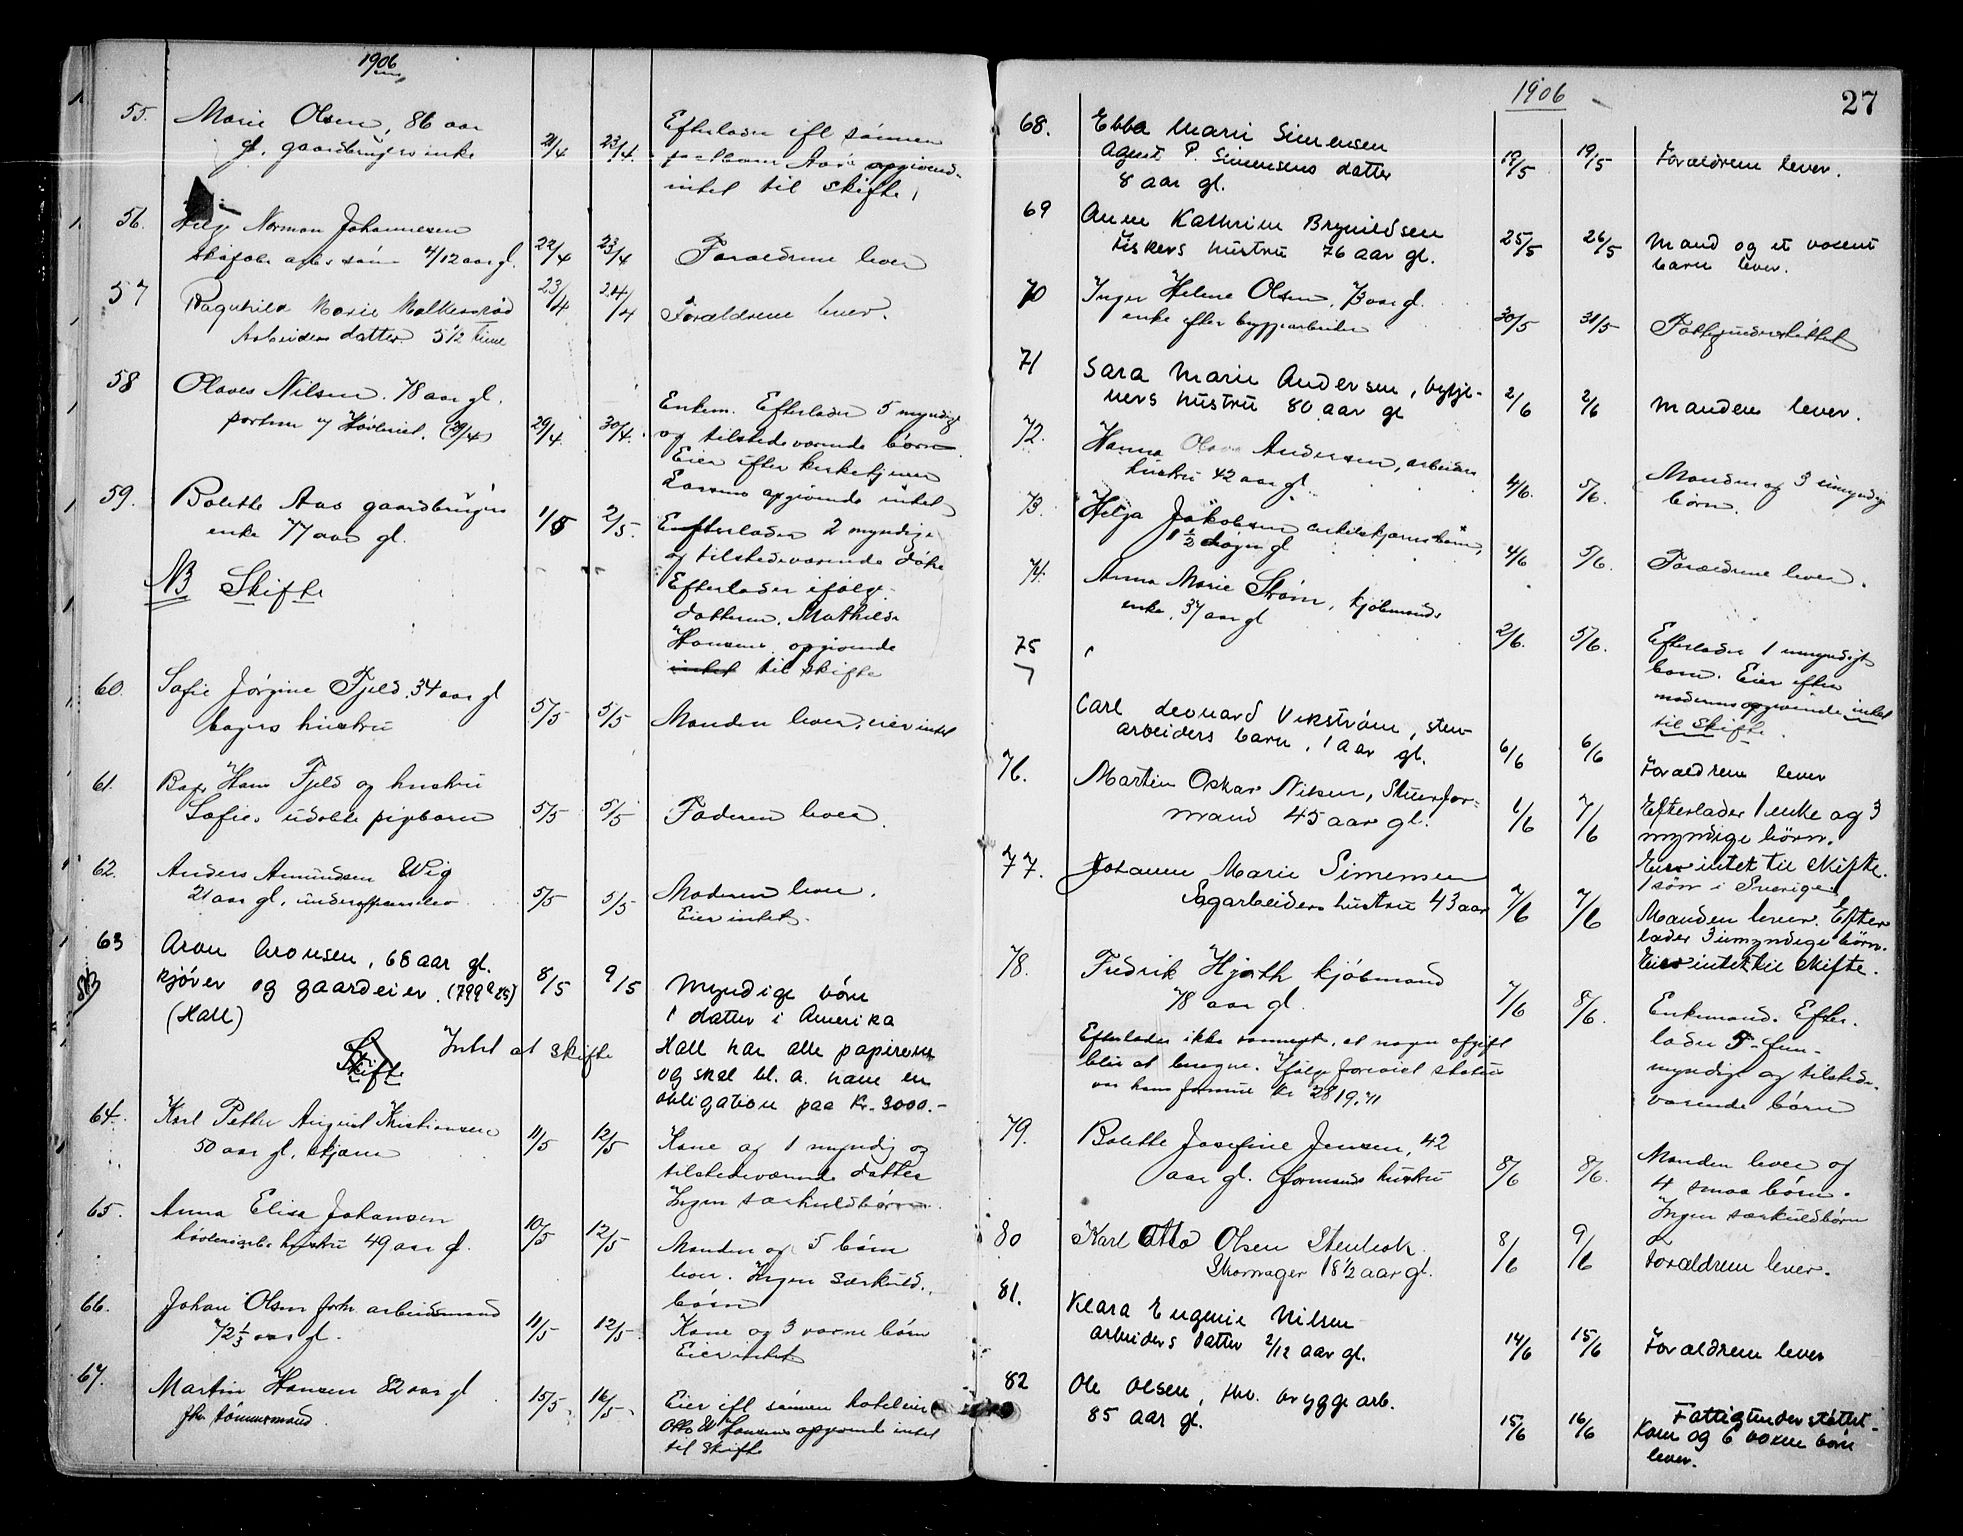 1906
55. Marie Olsen, 86 aar
gl. gaardbrugers enke
21/4 23/4.
Efterlader ifl sönnen
opgivende
intet til skifte.
56. Helge Norman Johannesen
søn 4/12 aar gl.
22/4 23/4
Forældrene lever
57 Ragnhild Marie
Arbeiders datter 5 1/2 time
23/4 24/4
Forældrene lever.
58 Olaves Nilsen. 78 aar gl.
portner v/ Høvleriet. (29/4)
29/4. 30/4.
Enkem. Efterlader 5 myndige
og tilstedeværende börn
Eier efter kirketjener
Larsens opgivende intet
59. Bolette Aas gaardbrugers
enke 77 aar gl.
NB Skifte
1/5 2/5.
Efterlader 2 myndige
og tilstedeværende døtre
Efterlader ifølge
datteren, Mathilde
Hansens opgivende
intet til skifte
60. Sofie Jørgine Fjeld. 34 aar gl
bagers hustru
5/5 5/5
Manden lever, eier intet
61. Bager Hans Fjeld og hustru
Sofies udøbte pigebarn
5/5 5/5
Faderen lever
62. Anders Amundsen Wig
21 aar gl,
5/5 5/5
Moderen lever.
Eier intet.
63 Aron Aronsen, 68 aar gl.
kjører og gaardeier.
(Hall)
Skifte
Intet at skifte
8/5 9/5
Myndige börn
1 datter i Amerika
Hall har alle papirerne
og skal bl. a. have en
obligation paa Kr. 3000.-
64. Karl Petter August Kristiansen
50 aar gl.
11/5 12/5
Kone og 1 myndig og
tilstedeværende datter
Ingen særkuldbörn
65. Anna Elise Johansen
høvleriarb. hustru 49 aar gl.
10/5 12/5
Manden og 5 börn
lever. Ingen særkuld-
börn
66. Johan Olsen forhv arbeidsmand
72 1/3 aar gl.
11/5 12/5
Kone og 3 voxne börn
Eier intet
67. Martin Hansen 82 aar gl
fhv. tømmermand.
15/5 16/5
Eier ifl sönnen hoteleier
Otto W Hansens opgivende intet
til skifte
1906
27
68. Ebba Marie Simensen
Agent P. Simensens datter
8 aar gl.
19/5 19/5
Forældrene lever.
69 Anne Kathrine Brynildsen
Fiskers hustru 76 aar gl.
25/5 26/5
Mand og et voxent
barn lever.
70 Inger Helene Olsen, 73 aar gl.
enke efter bryggearbeider
30/5 31/5
Fattigunderstöttet
71 Sara Marie Andersen,
hustru 80 aar gl
2/6 2/6
Manden lever.
72. Hanna Olava Andersen, arbeiders
hustru 42 aar gl.
4/6. 5/6.
Manden og 3 umyndige
börn.
73. Helga Jakobsen
1 1/2 døgn gl
4/6 5/6.
Forældrene lever.
74. Anna Marie Strøm, kjøbmands
enke, 37 aar gl
2/6. 5/6.
Efterlader 1 umyndigt
barn. Eier efter
moderens opgivende intet
til skifte.
75
Carl Leonard Vikstrøm, sten-
arbeiders barn, 1 aar gl.
6/6 6/6
Forældrene lever
76. Martin Oskar Nilsen, Stuerfor-
mand 45 aar gl.
6/6 7/6
Efterlader 1 enke og 3
myndige börn.
Eier intet til skifte.
1 sön i Sverige
77. Johanne Marie Simensen
Sagarbeiders hustru 43 aar
7/6 7/6
Manden lever. Efter
lader 3 umyndige börn.
Eier intet til skifte.
78. Fredrik Hjorth kjöbmand
78 aar gl.
7/6 8/6.
Enkemand. Efter-
lader 5
myndige og tilstede-
værende börn
Efterlader ikke saameget, at nogen afgift
blir at beregne. Ifølge forevist status
var hans formue Kr 2819.71
79. Bolette Josefine Jensen, 42
aar gl. formands hustru
8/6 8/6.
Manden lever og
4 smaa börn.
Ingen særkuldbörn
80 Karl Otto Olsen Stenbæk
Skomager 18 1/2 aar gl.
8/6 9/6
Forældrene lever.
81. Klara Eugenie Nilsen
arbeiders datter 2/12 aar gl.
14/6 15/6
Forældrene lever
82 Ole Olsen, fhv. brygge arb.
85 aar gl.
15/6 16/6
Fattigunderstøttet.
Kone og 6 voxne börn
lever.